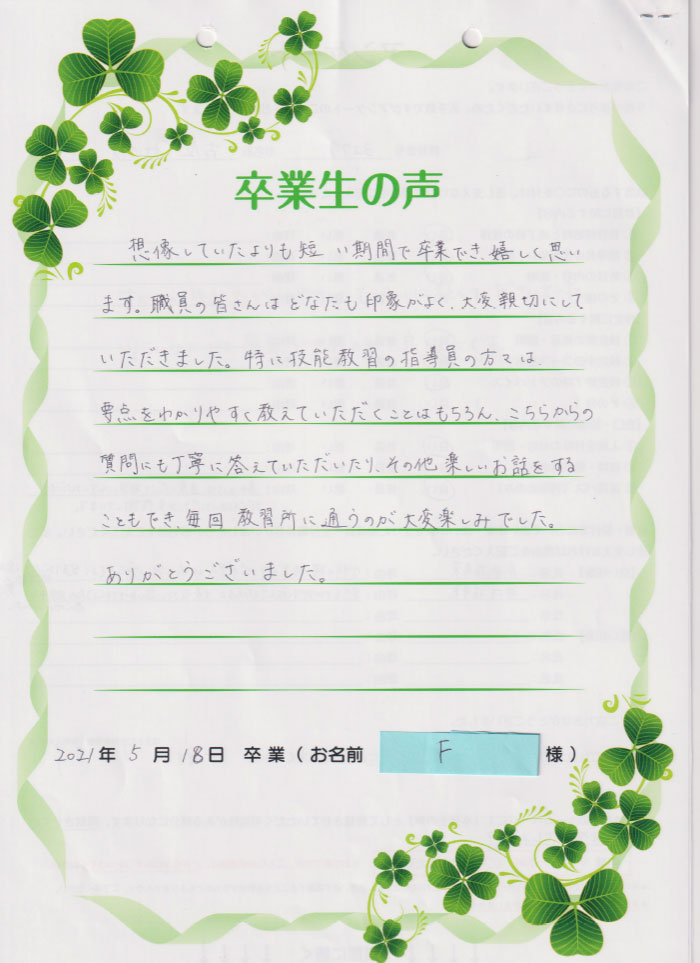 卒業生の声
想像していたよりも短い期間で卒業でき、嬉しく思い
ます。職員の皆さんはどなたも印象がよく、大変親切にして
いただきました。特に技能教習の指導員の方々は、
要点をわかりやすく教えていただくことはもちろん、こちらからの
質問にも丁寧に答えていただいたり、その他楽しいお話をする
こともでき、毎回教習所に通うのが大変楽しみでした。
ありがとうございました。
2021年 5月 18日 卒業(お名前 F 様)